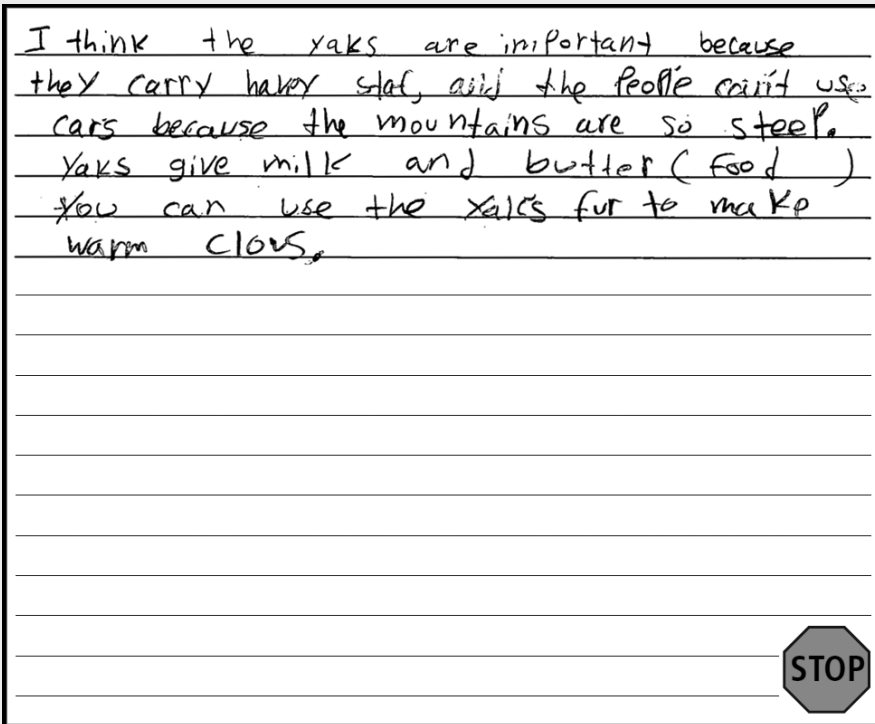 I think the yaks are important because
they carry havey staf, and the people can't use
cars because the mountains are so steep.
Yaks give milk and butter (food )
You can use the yaks fur to make
warm clovs.
STOP